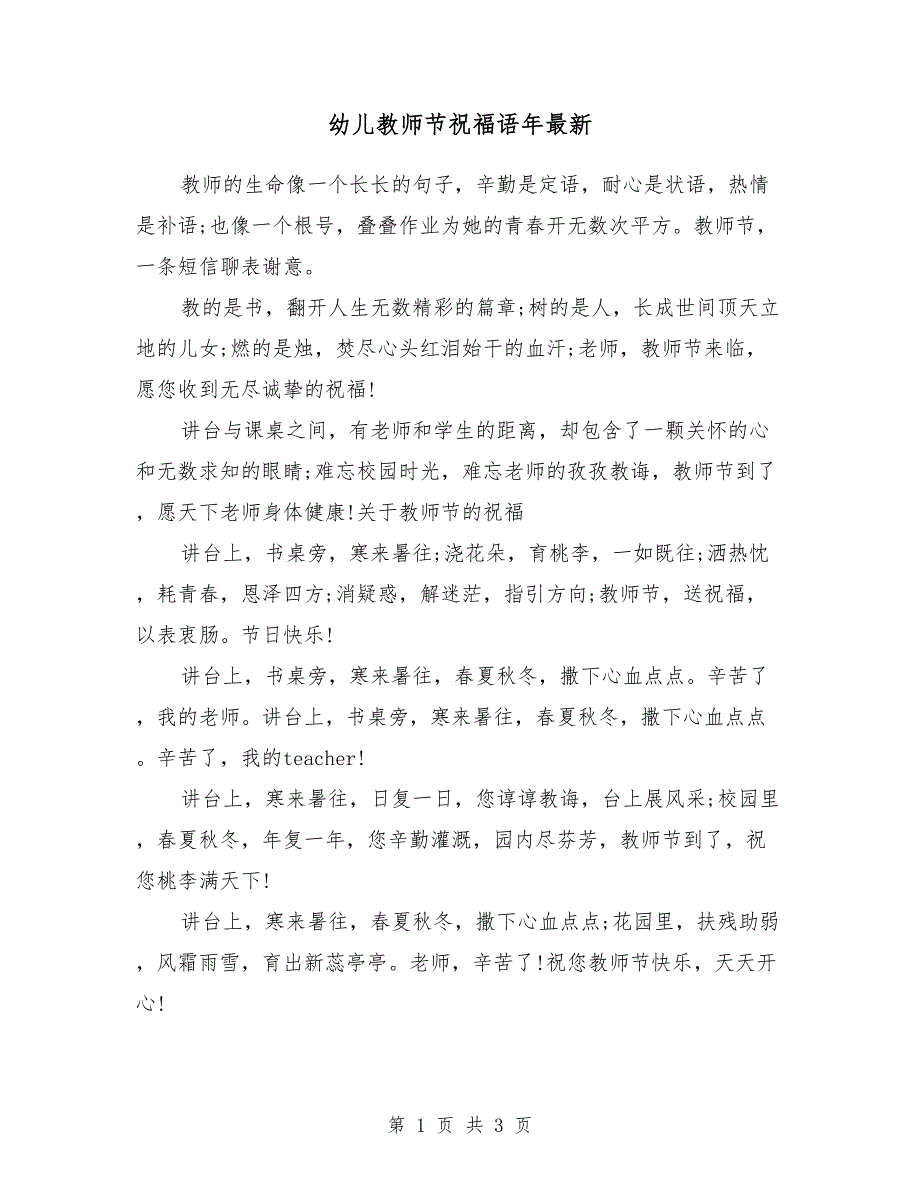 幼儿教师节祝福语年最新
教师的生命像一个长长的句子，辛勤是定语，耐心是状语，热情
是补语;也像一个根号，叠叠作业为她的青春开无数次平方。教师节，
一条短信聊表谢意。
教的是书，翻开人生无数精彩的篇章;树的是人，长成世间顶天立
地的儿女;燃的是烛，焚尽心头红泪始干的血汗;老师，教师节来临，
愿您收到无尽诚挚的祝福!
讲台与课桌之间，有老师和学生的距离，却包含了一颗关怀的心
和无数求知的眼睛;难忘校园时光，难忘老师的孜孜教诲，教师节到了
，愿天下老师身体健康!关于教师节的祝福
讲台上，书桌旁，寒来暑往;浇花朵，育桃李，一如既往;洒热忱
，耗青春，恩泽四方;消疑惑，解迷茫，指引方向;教师节，送祝福，
以表衷肠。节日快乐!
讲台上，书桌旁，寒来暑往，春夏秋冬，撒下心血点点。辛苦了
，我的老师。讲台上，书桌旁，寒来暑往，春夏秋冬，撒下心血点点
。辛苦了，我的teacher!
讲台上，寒来暑往，日复一日，您谆谆教诲，台上展风采;校园里
，春夏秋冬，年复一年，您辛勤灌溉，园内尽芬芳，教师节到了，祝
您桃李满天下!
讲台上，寒来暑往，春夏秋冬，撒下心血点点;花园里，扶残助弱
，风霜雨雪，育出新蕊亭亭。老师，辛苦了!祝您教师节快乐，天天开
心!
第 1 页 共 3 页